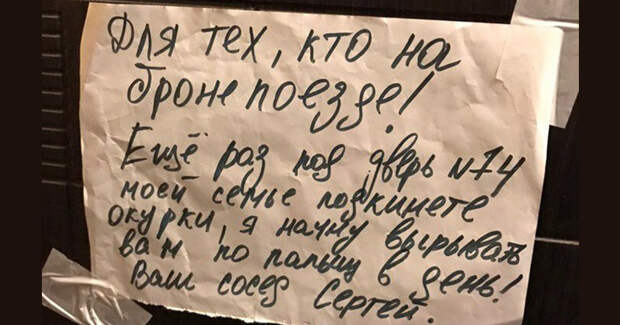 Для тех, кто на
бронепоезде!
Ещё раз под дверь №74
моей семье подкинете
окурки, я начну вырывать
вам по пальцу в день!
Ваш сосед Сергей.